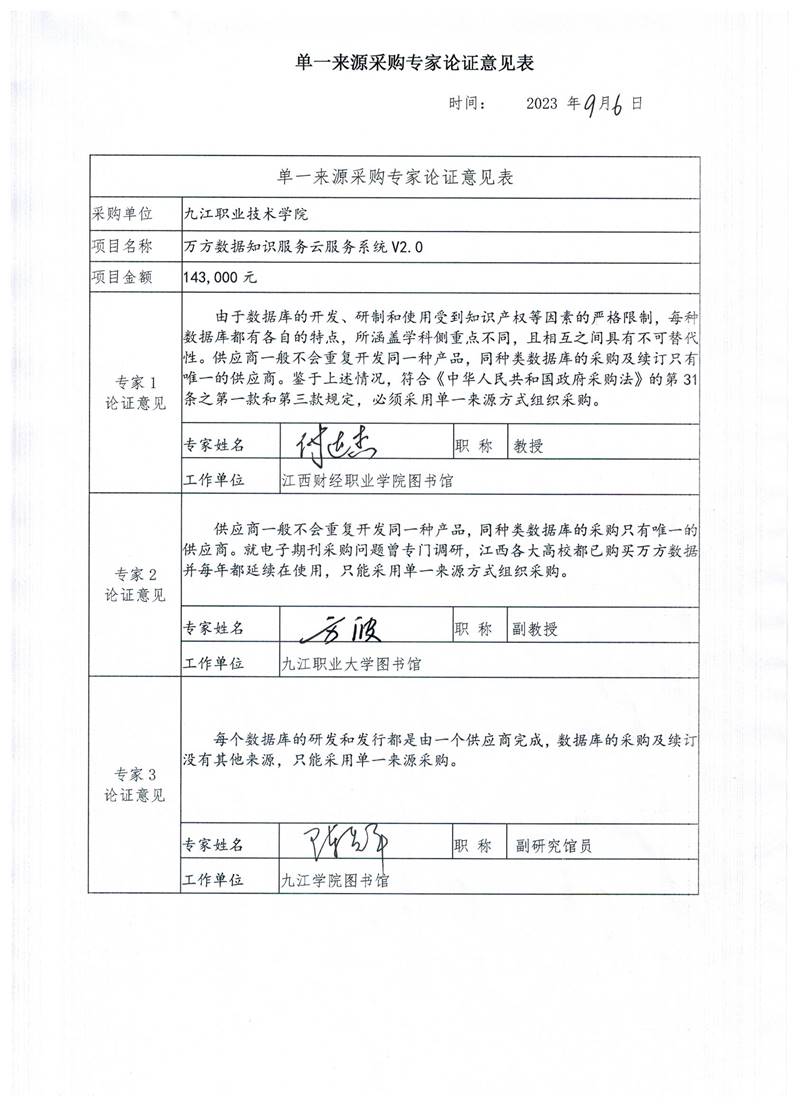 单一来源采购专家论证意见表
时间： 2023 年9月6日
单一来源采购专家论证意见表
采购单位 九江职业技术学院
项目名称 万方数据知识服务云服务系统V2.0
项目金额 143,000 元
专家 1
论证意见
由于数据库的开发、研制和使用受到知识产权等因素的严格限制，每种
数据库都有各自的特点，所涵盖学科侧重点不同，且相互之间具有不可替代
性。供应商一般不会重复开发同一种产品，同种类数据库的采购及续订只有
唯一的供应商。鉴于上述情况，符合《中华人民共和国政府采购法》的第 31
条之第一款和第三款规定，必须采用单一来源方式组织采购。
专家姓名 付达杰 职 称 教授
工作单位 江西财经职业学院图书馆
专家 2
论证意见
供应商一般不会重复开发同一种产品，同种类数据库的采购只有唯一的
供应商。就电子期刊采购问题曾专门调研，江西各大高校都已购买万方数据
并每年都延续在使用，只能采用单一来源方式组织采购。
专家姓名 方波 职 称 副教授
工作单位 九江职业大学图书馆
专家 3
论证意见
每个数据库的研发和发行都是由一个供应商完成，数据库的采购及续订
没有其他来源，只能采用单一来源采购。
专家姓名 职 称 副研究馆员
工作单位 九江学院图书馆